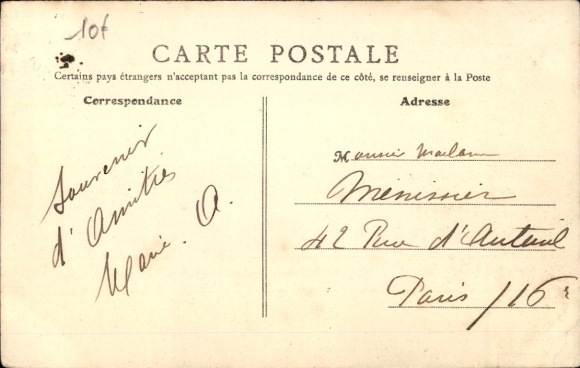 10f
CARTE POSTALE
Certains pays étrangers n'acceptant pas la correspondance de ce côté, se renseigner à la Poste
Correspondance
Souvenir
d'Amitiés
Marie. A.
Adresse
Monsieur Madame
Ménissier
42 Rue d'Auteuil
Paris /16e